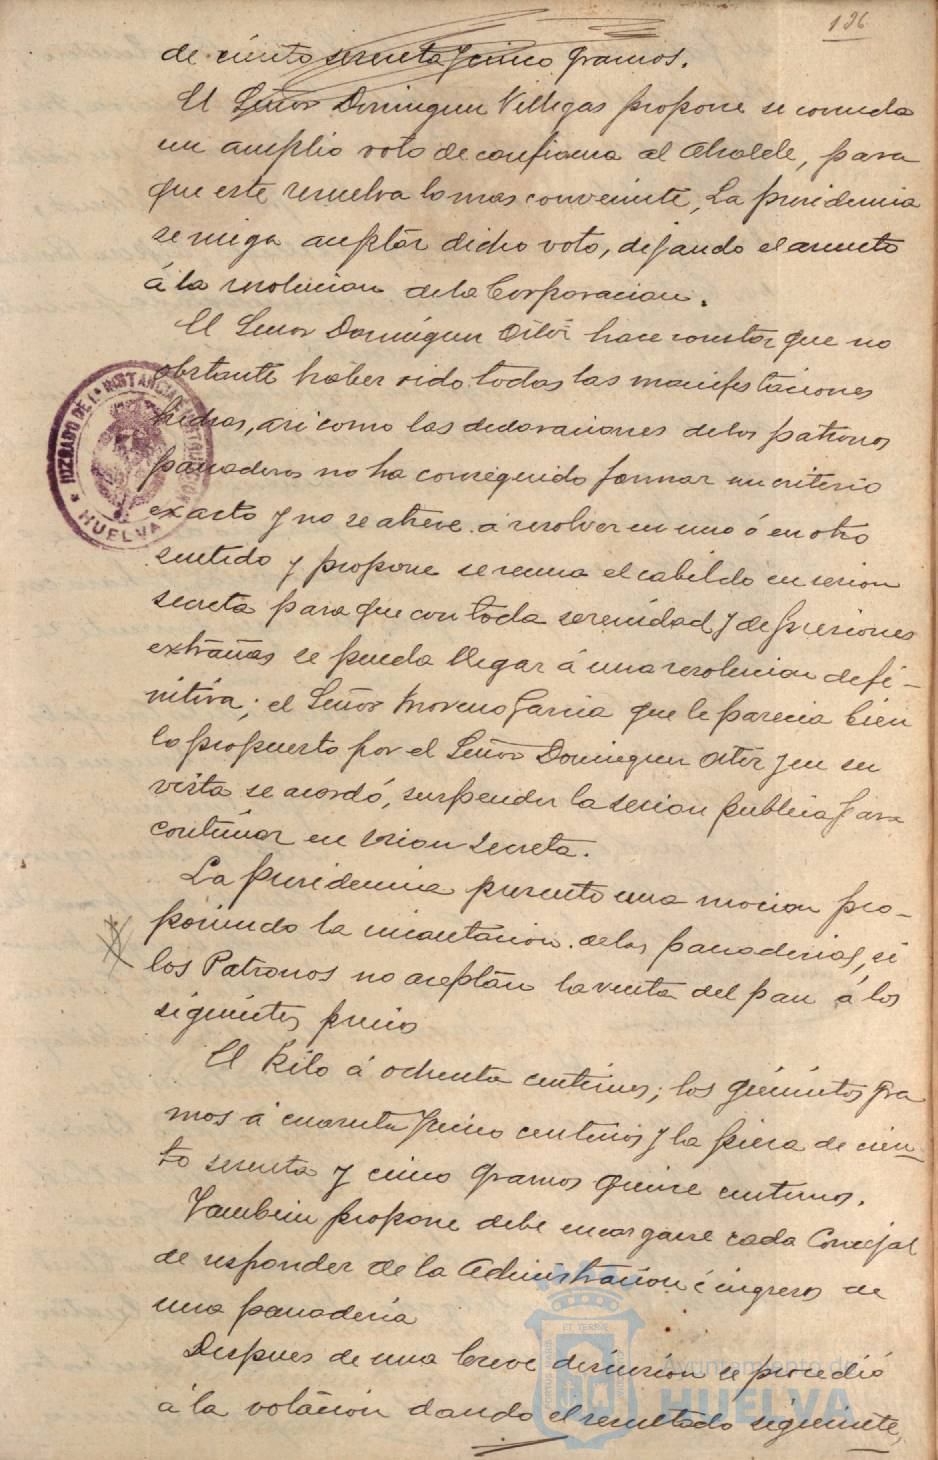 196
de ciento sesenta y cinco gramos.
El Señor Dominguez Villegas propone se conceda
un amplio voto de confianza al Alcalde, para
que este resuelva lo mas conveniente, La presidencia
se niega aceptar dicho voto, dejando el asunto
á la resolucion de la Corporacion.
El Señor Dominguez hace constar que no
obstante haber oido todas las manifestaciones
hechas, asi como las declaraciones de los patronos
panaderos no ha conseguido formar un criterio
exacto y no se atreve á resolver en uno ó en otro
sentido y propone se reuna el cabildo en sesion
secreta para que con toda serenidad y de presiones
extrañas se pueda llegar á una resolucion defi-
nitiva; el Señor Moreno Garcia que le parecia bien
lo propuesto por el Señor Dominguez y en su
vista se acordó, suspender la sesion publica para
continuar en sesion secreta.
La presidencia presento una mocion pro-
poniendo la incautacion de las panaderias, si
los Patronos no aceptan la venta del pan á los
siguientes precios
El Kilo á ochenta centimos; los quinientos gra
mos á cuarenta y cinco centimos y la pieza de cien-
to sesenta y cinco gramos quince centimos.
Tambien propone debe encargarse cada Concejal
de responder de la Administracion é ingreso de
una panaderia
Despues de una breve discusion se procedió
á la votacion dando el resultado siguiente,
JUZGADO DE 1ª INSTANCIA E INSTRUCCION
* HUELVA *
Ayuntamiento de
HUELVA